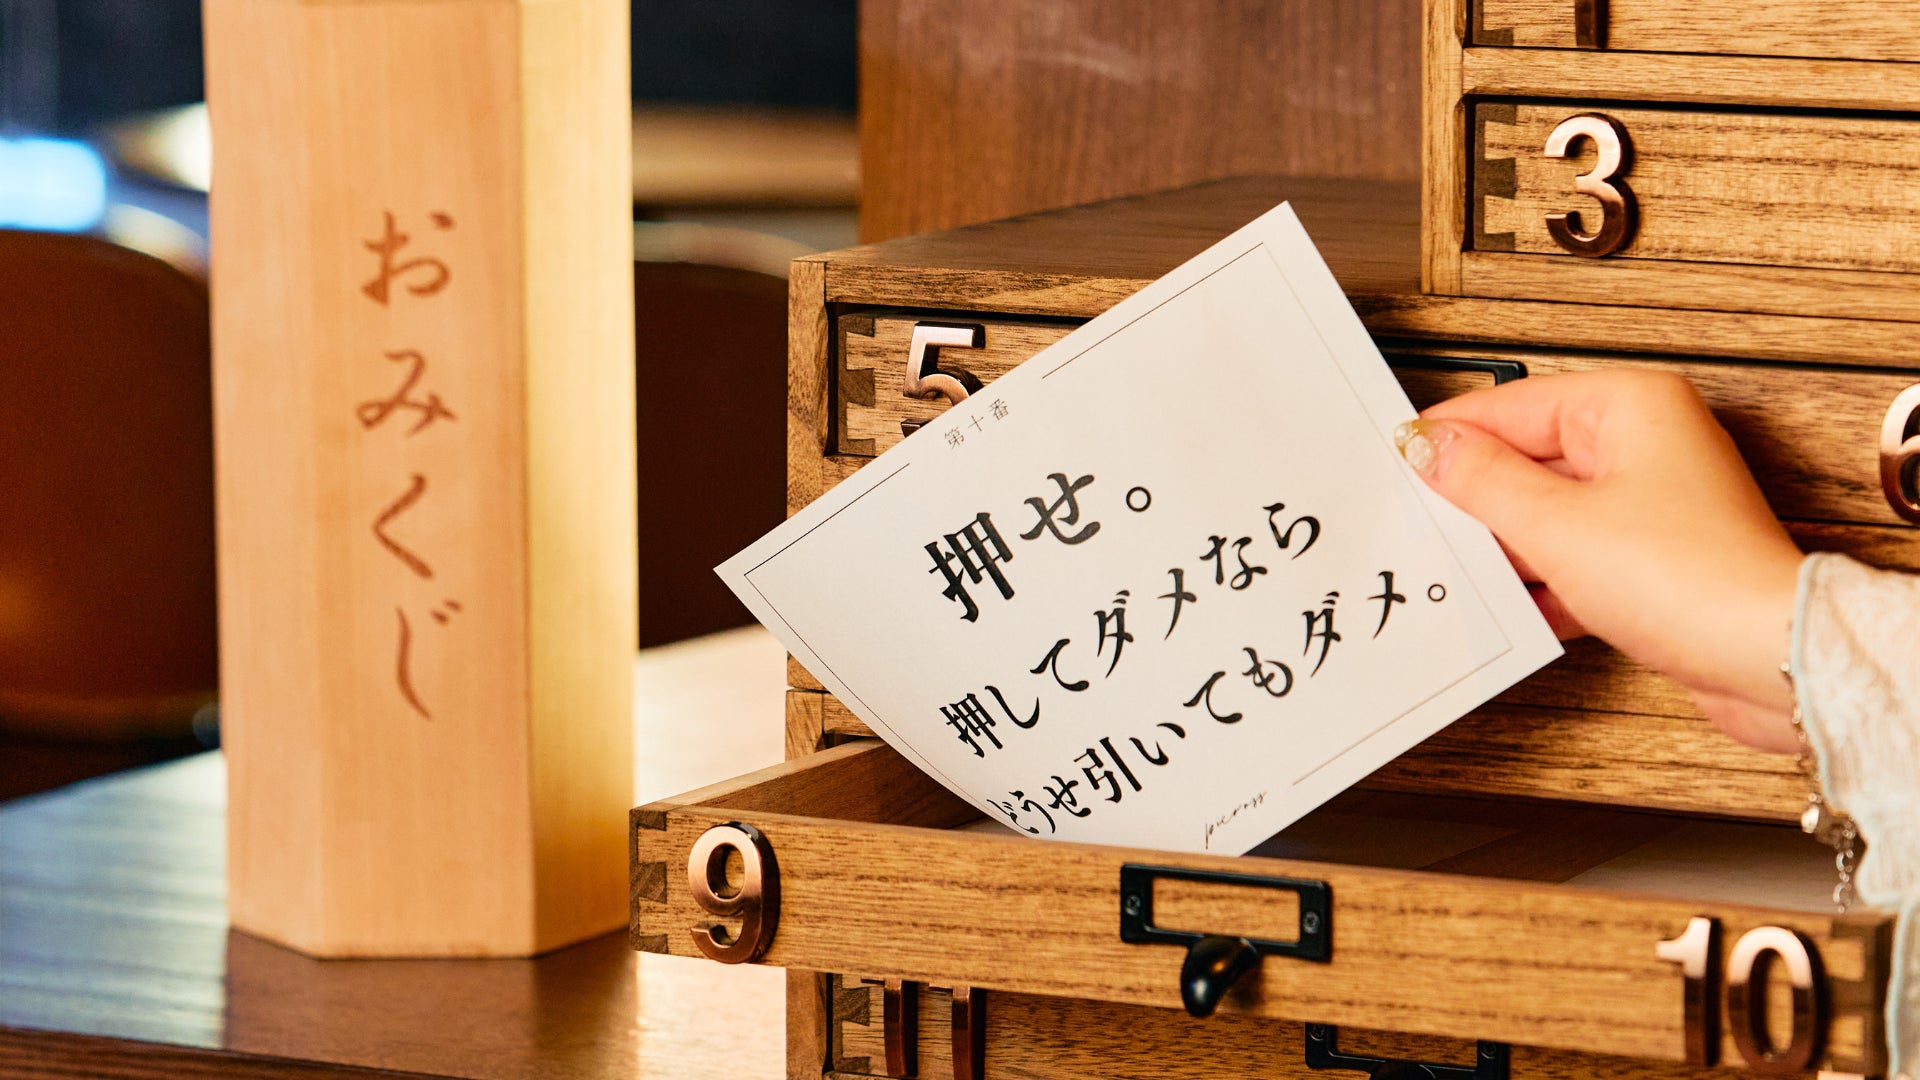 おみくじ
第十番
押せ。
押してダメなら
どうせ引いてもダメ。
3
5
6
9
10
11